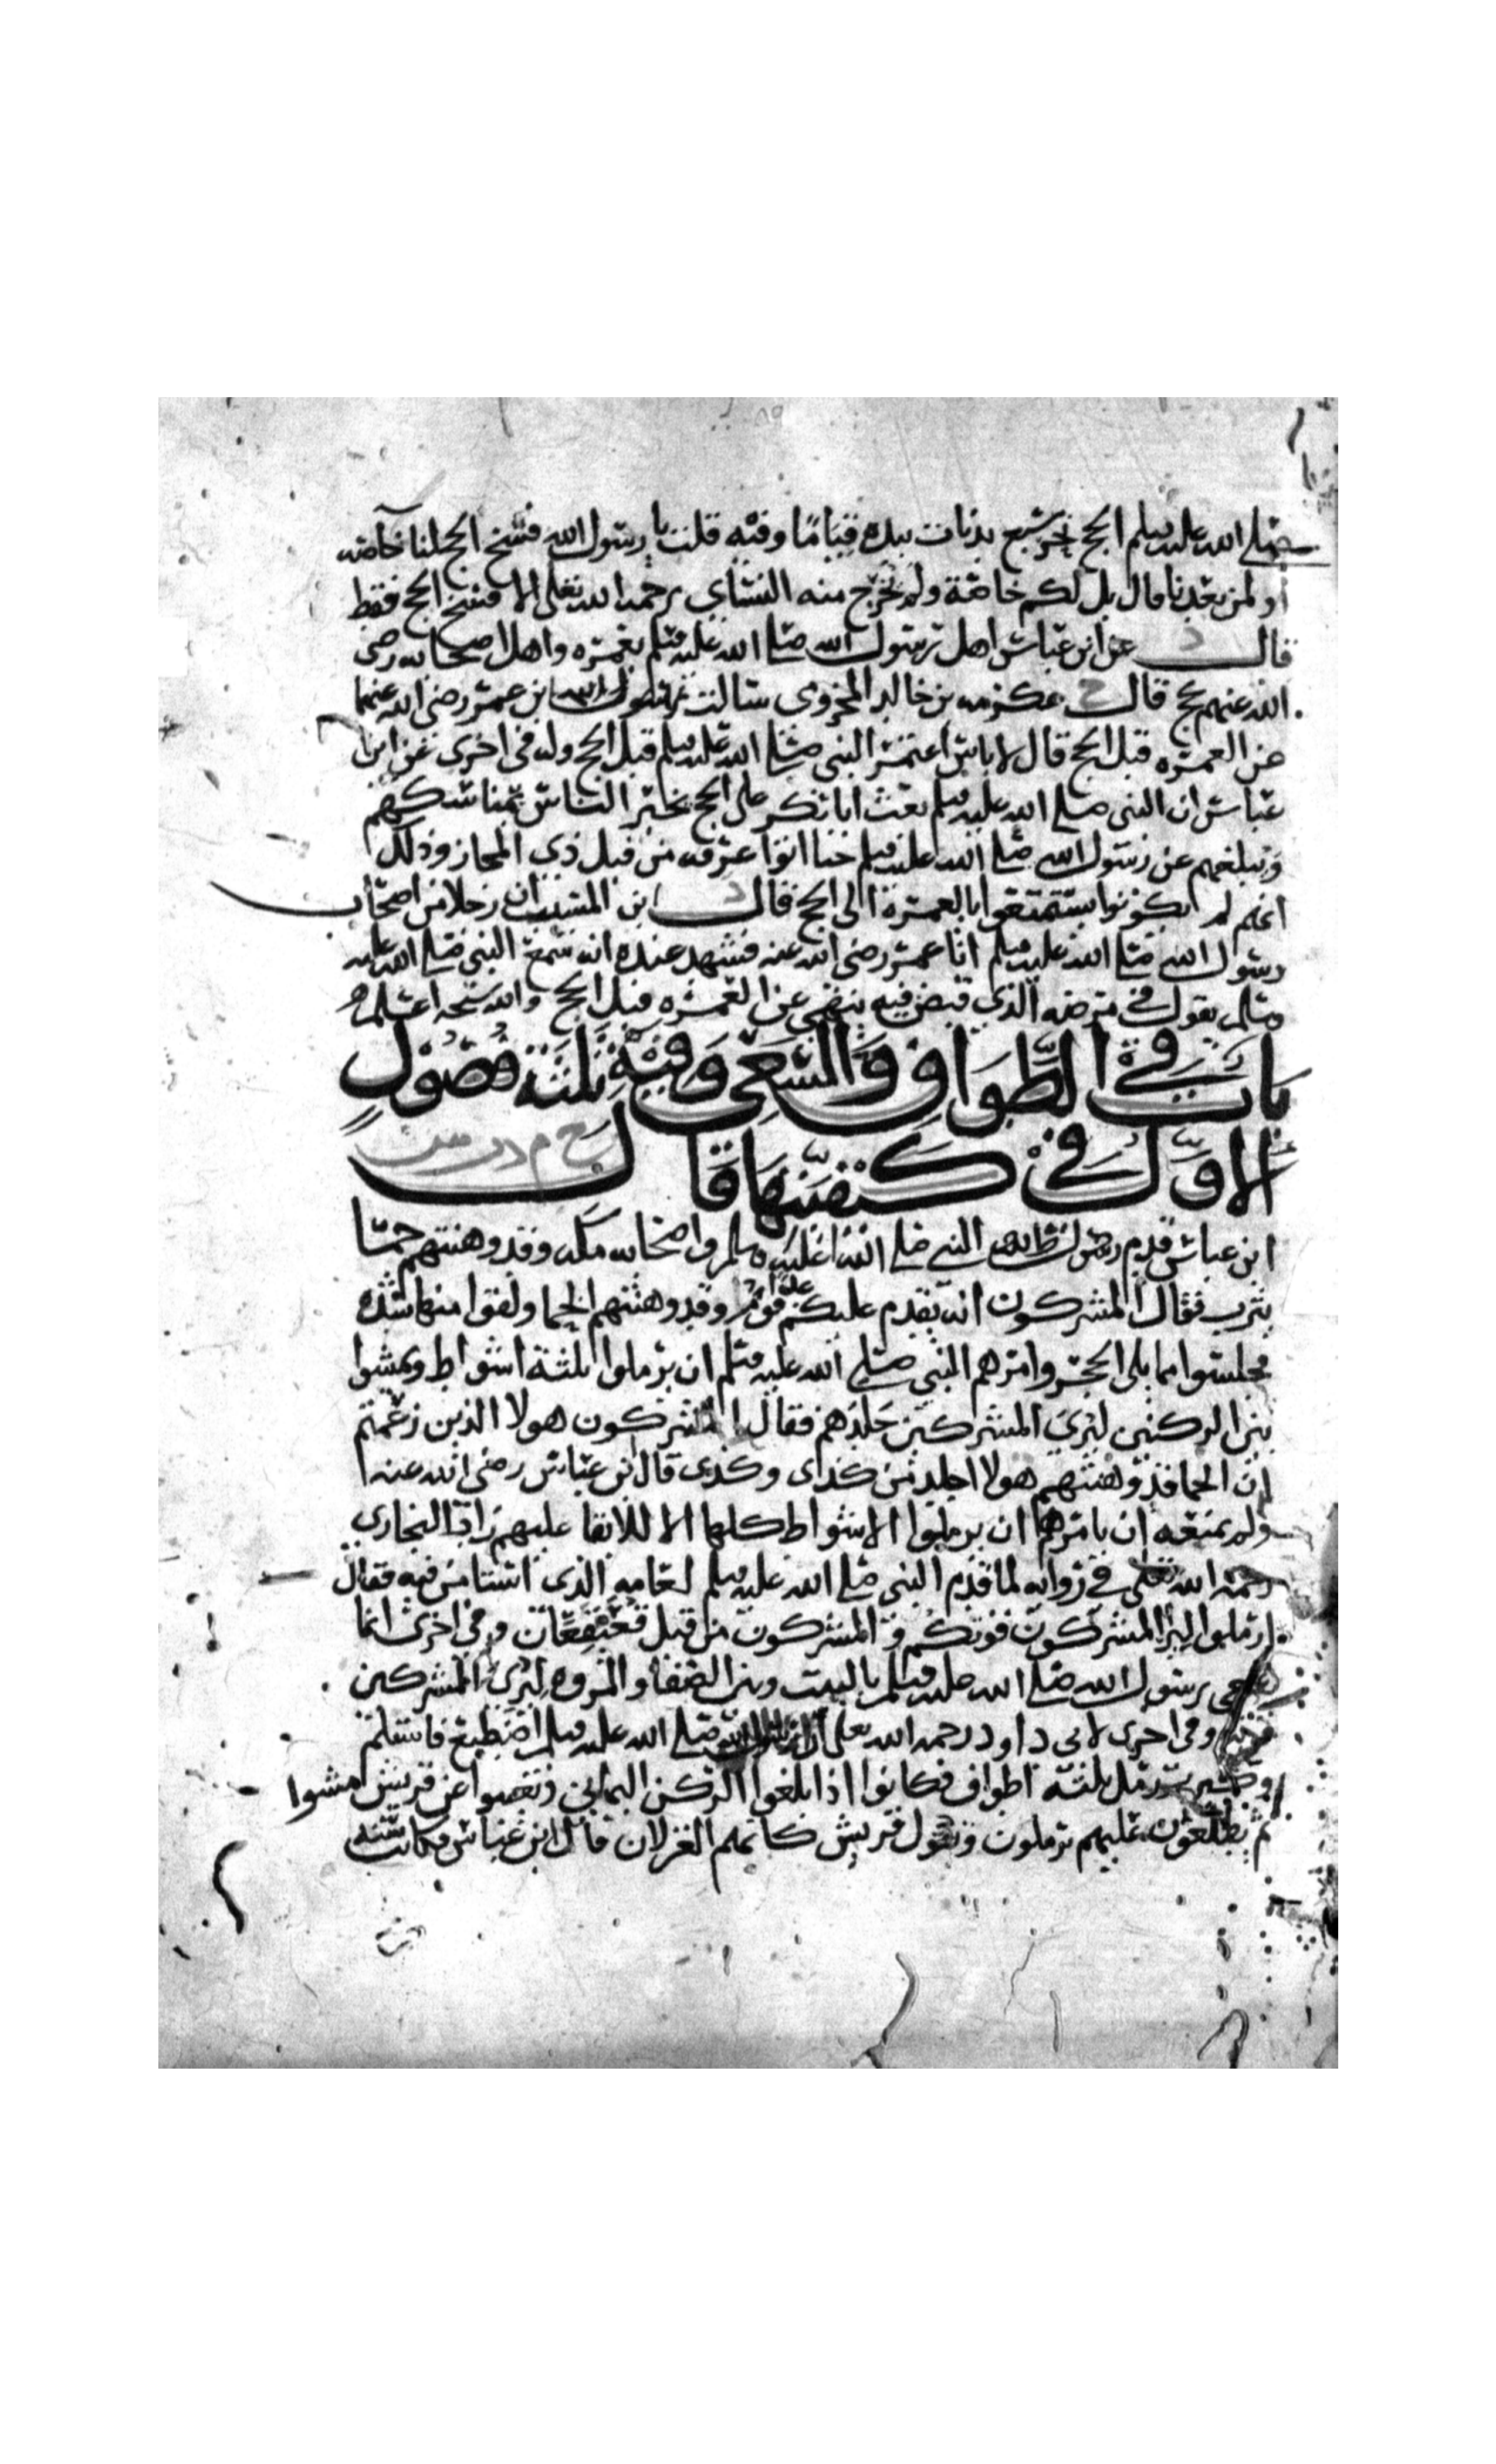 صلى الله عليه وسلم الحج نحر سبع بدنات بيده قياما وفيه قلت يا رسول الله فسخ الحج لنا خاصه
او لمن بعدنا قال بل لكم خاصة ولم يخرج منه النسائي رحمه الله تعالى الا فسخ الحج فقط
قال د عن ابن عباس اهل رسول الله صلى الله عليه وسلم بعمره واهل اصحابه رضي
الله عنهم بحج قال خ عكرمه بن خالد المخزومي سالت ابن عمر رضي الله عنهما
عن العمره قبل الحج قال لا باس اعتمر النبي صلى الله عليه وسلم قبل الحج وله في اخرى عن ابن
عباس ان النبي صلى الله عليه وسلم بعث ابا بكر على الحج يخبر الناس بمناسكهم
ويبلغهم عن رسول الله صلى الله عليه وسلم حتا اتوا عرفه من قبل ذي المجاز وذلك
انهم لم يكونوا يستمتعوا بالعمرة الى الحج قال د ابن المسيب ان رجلا من اصحاب
رسول الله صلى الله عليه وسلم اتا عمر رضي الله عنه فشهد عنده انه سمع النبي صلى الله عليه
وسلم يقول في مرضه الذي قبض فيه ينهى عن العمره قبل الحج والله سبحنه اعلم
باب في الطواف والسعي وفيه ثلثه فصول
الاول في كيفيتها قال خ م د س
ابن عباس قدم النبي صلى الله عليه وسلم واصحابه مكه وقد وهنتهم حما
يثرب فقال المشركون انه يقدم عليكم غدا قوم وقد وهنتهم الحما ولقوا منها شده
فجلسوا مما يلي الحجر وامرهم النبي صلى الله عليه وسلم ان يرملوا ثلثة اشواط ويمشوا
بين الركنين ليرى المشركين جلدهم فقال المشركون هولا الذين زعمتم
ان الحما قد وهنتهم هولا اجلد من كذى وكذى قال ابن عباس رضي الله عنه
ولم يمنعه ان يامرهم ان يرملوا الاشواط كلها الا للابقا عليهم زاد البخاري
رحمه الله تعلى في روايه لما قدم النبي صلى الله عليه وسلم لعامه الذي استامن فيه فقال
ارملوا ليرا المشركون قوتكم و المشركون من قبل قعيقعان وفي اخرى انما
سعى رسول الله صلى الله عليه وسلم بالبيت وبين الصفا والمروه ليرى المشركين
قوته وفي اخرى لابي داود رحمه الله تعلى ان النبي صلى الله عليه وسلم اضطبع فاستلم
وكبر ثم رمل ثلثه اطواف فكانوا اذا بلغوا الركن اليماني وتغيبوا عن قريش مشوا
ثم يطلعون عليهم يرملون وتقول قريش كانهم الغزلان قال ابن عباس فكانت سنه